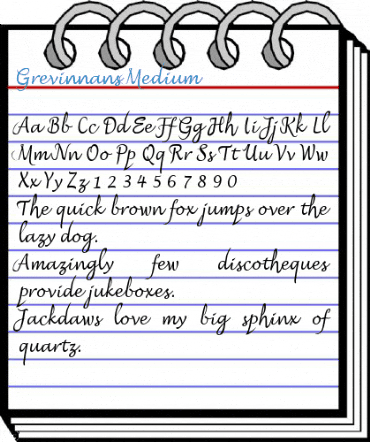 Grevinnans Medium
Aa Bb Cc Dd Ee Ff Gg Hh Ii Jj Kk Ll
Mm Nn Oo Pp Qq Rr Ss Tt Uu Vv Ww
Xx Yy Zz 1 2 3 4 5 6 7 8 9 0
The quick brown fox jumps over the
lazy dog.
Amazingly few discotheques
provide jukeboxes.
Jackdaws love my big sphinx of
quartz.